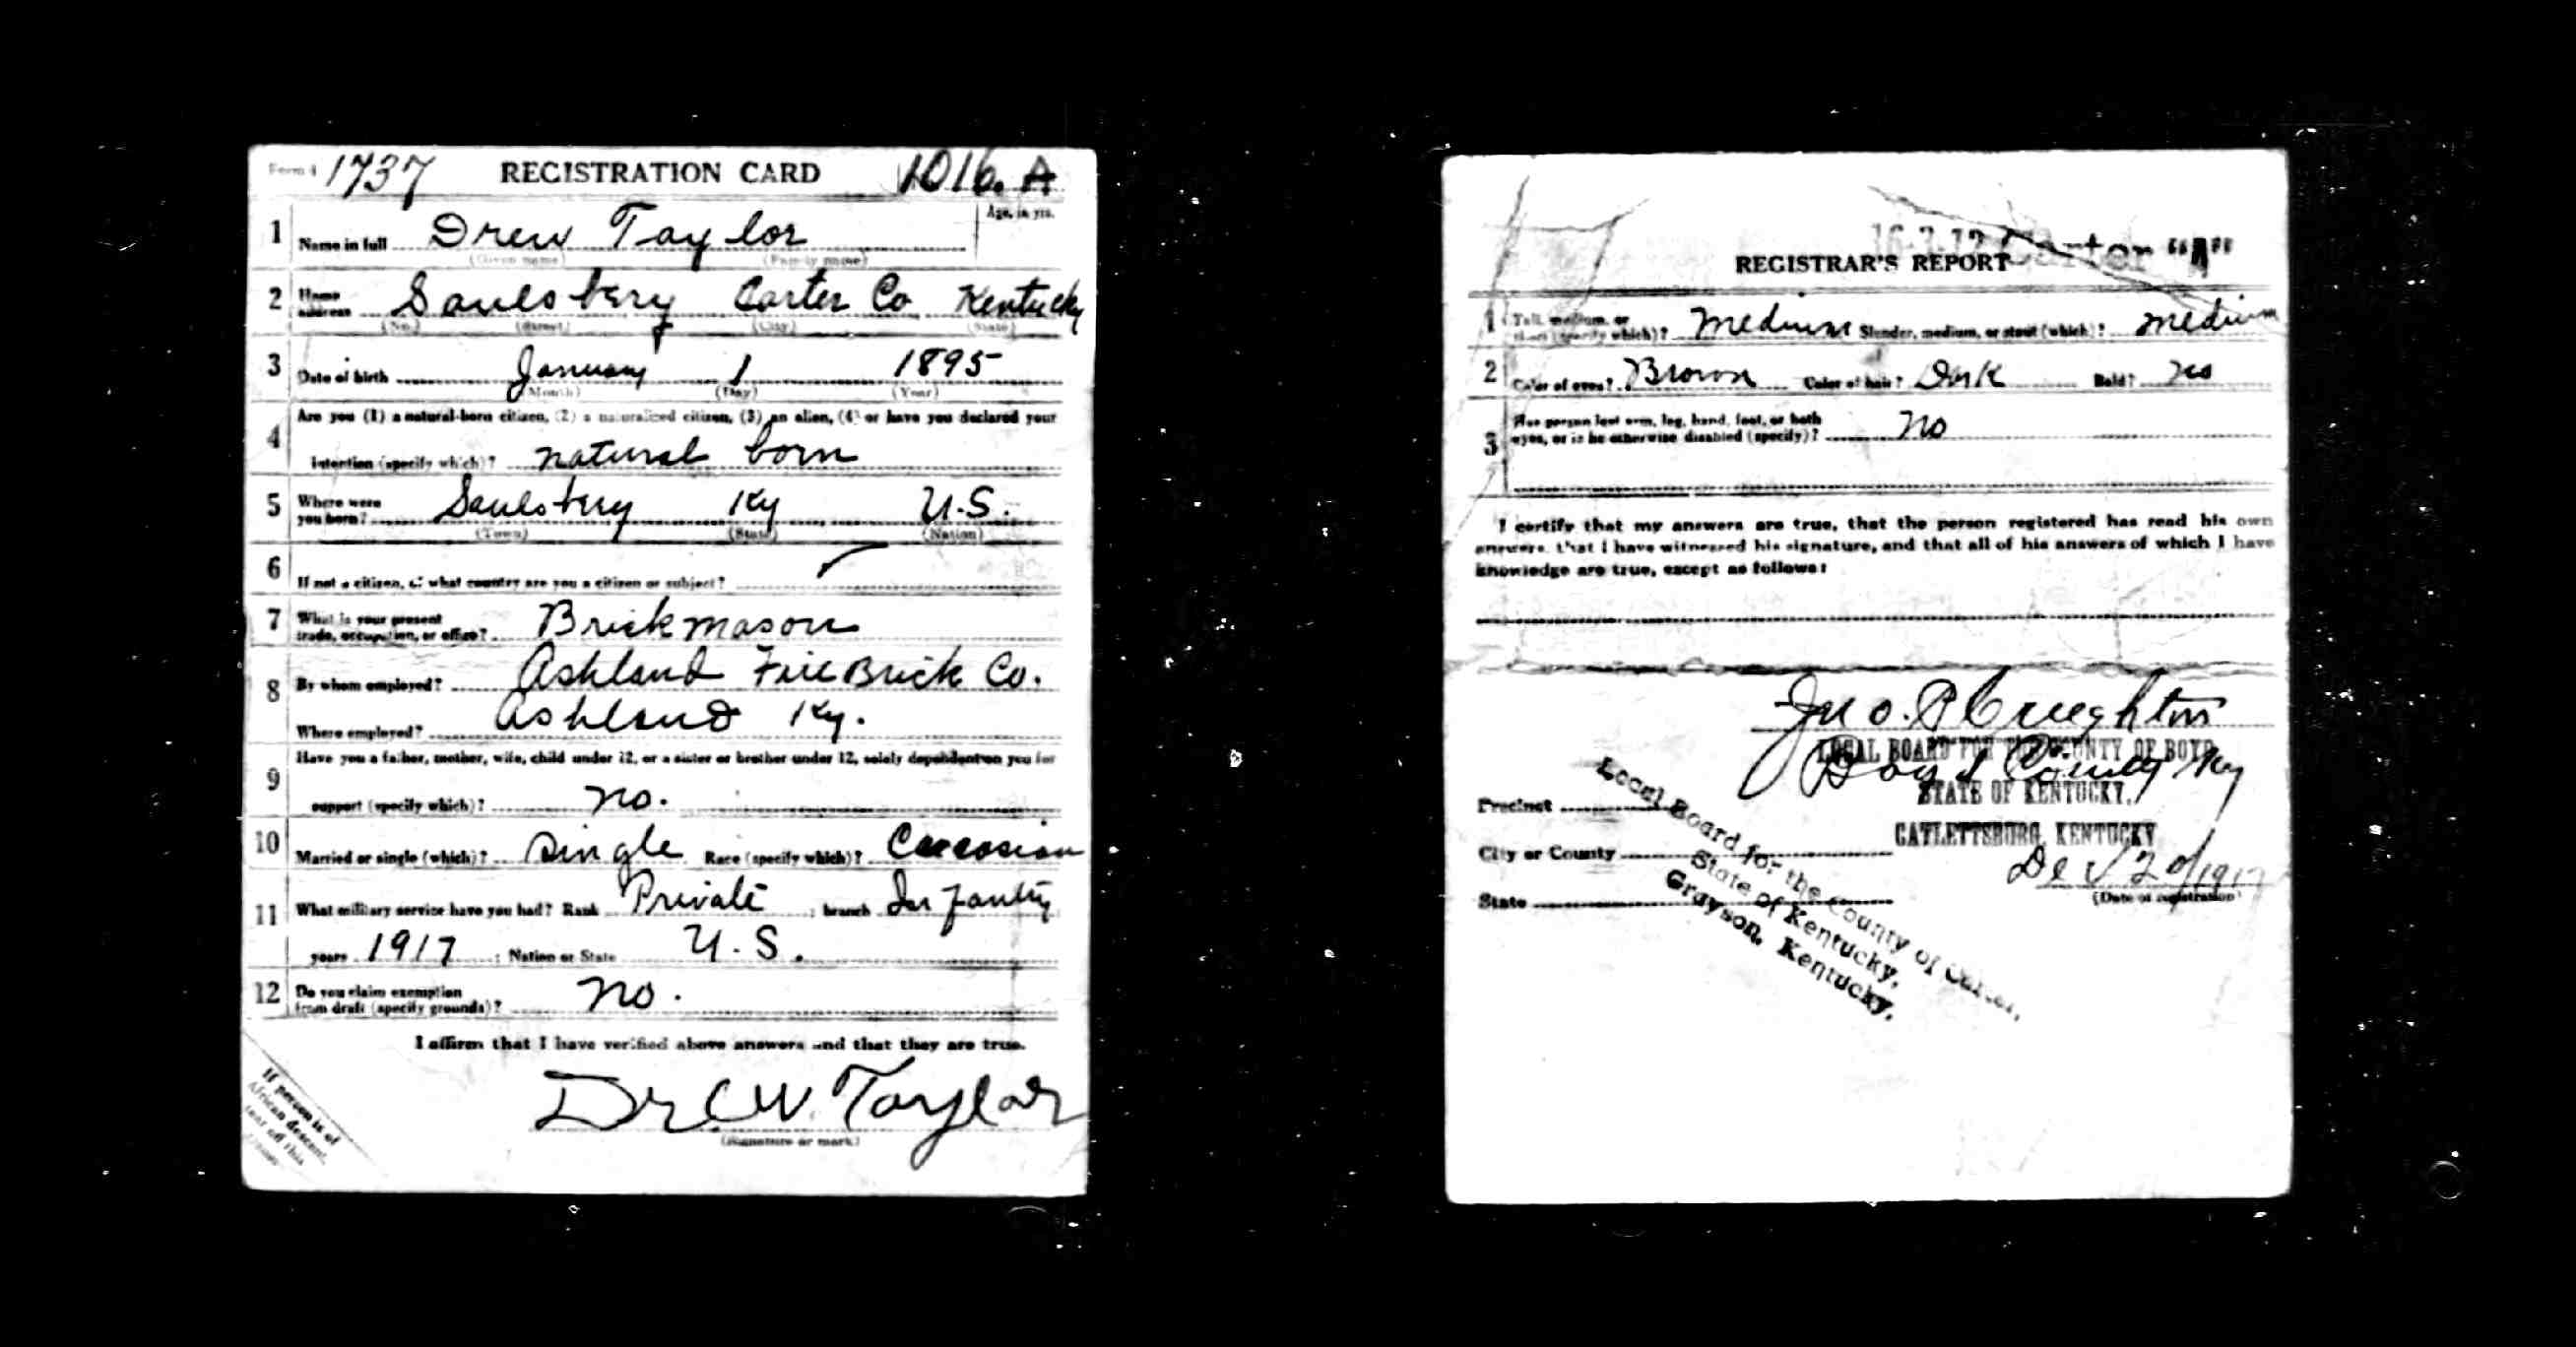 Form 1 1737 REGISTRATION CARD 1016. A
Age, in yrs.
1 Name in full Drew Taylor
(Given name) (Family name)
2 Home address Saulsbery Carter Co Kentucky
(No.) (Street) (City) (State)
3 Date of birth January 1 1895
(Month) (Day) (Year)
4 Are you (1) a natural-born citizen, (2) a naturalized citizen, (3) an alien, (4) or have you declared your
intention (specify which)? natural born
5 Where were you born? Saulsbery Ky U.S.
(Town) (State) (Nation)
6 If not a citizen, of what country are you a citizen or subject?
7 What is your present trade, occupation, or office? Brickmason
8 By whom employed? Ashland Fire Brick Co.
Where employed? Ashland Ky.
9 Have you a father, mother, wife, child under 12, or a sister or brother under 12, solely dependent on you for
support (specify which)? No.
10 Married or single (which)? Single Race (specify which)? Caucasian
11 What military service have you had? Rank Private ; branch Infantry
years 1917 ; Nation or State U.S.
12 Do you claim exemption from draft (specify grounds)? No.
I affirm that I have verified above answers and that they are true.
Drew Taylor
(Signature or mark)
If person is of
African descent,
tear off this
corner
16-3-12 Carter "A"
REGISTRAR'S REPORT
1 Tall, medium, or short (specify which)? Medium Slender, medium, or stout (which)? Medium
2 Color of eyes? Brown Color of hair? Dark Bald? No
3 Has person lost arm, leg, hand, foot, or both
eyes, or is he otherwise disabled (specify)? No
I certify that my answers are true, that the person registered has read his own
answers, that I have witnessed his signature, and that all of his answers of which I have
knowledge are true, except as follows:
Jno. P Creighton
LOCAL BOARD FOR THE COUNTY OF BOYD
Boyd County Ky
Precinct STATE OF KENTUCKY,
City or County CATLETTSBURG, KENTUCKY
State
(Date of registration)
Local Board for the County of Carter,
State of Kentucky,
Grayson, Kentucky.